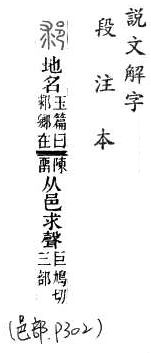 說文解字
段注本
地名玉篇曰鄉在陳畱从邑求聲巨鳩切三部
(邑部.P302)